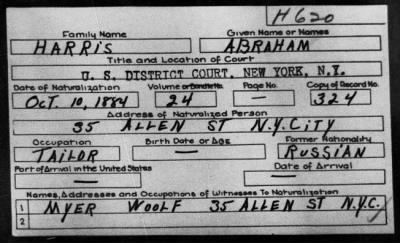 H620
Family Name Given Name or Names
HARRIS ABRAHAM
Title and Location of Court
U. S. DISTRICT COURT, NEW YORK, N.Y.
Date of Naturalization Volume or Bundle No. Page No. Copy of Record No.
OCT. 10, 1884 24 — 324
Address of Naturalized Person
35 ALLEN ST N.Y.CITY
Occupation Birth Date or Age Former Nationality
TAILOR — RUSSIAN
Port of Arrival in the United States Date of Arrival
— —
Names, Addresses and Occupations of Witnesses To Naturalization
1 MYER WOOLF 35 ALLEN ST N.Y.C.
2